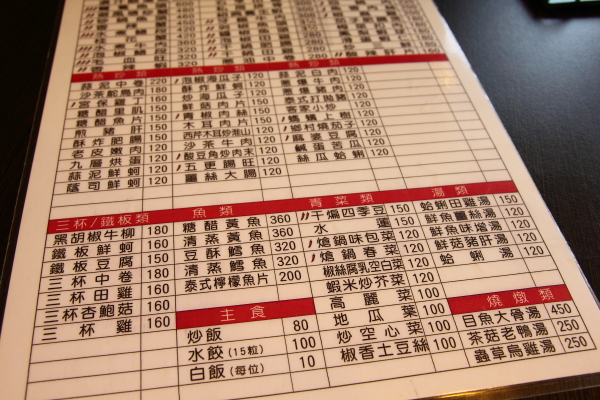 熱炒類 熱炒類 熱炒類
蒜泥中卷 220
沙茶鴕鳥肉 180
宮保雞丁 160
糖醋里肌 150
糖醋魚片 150
煎豬肝 150
酥炸肥腸 150
老皮嫩肉 120
九層烘蛋 120
蒜泥鮮蚵 120
蔭司鮮蚵 120
泡椒海瓜子 120
酥炸鮮蚵 120
炒海瓜子 120
鮮菇肉片 150
青椒肉絲 150
木耳肉片 150
西芹木耳炒淮山 120
沙茶牛肉 120
酸豆角炒肉末 120
五更腸旺 120
薑絲大腸 120
蒜泥白肉 120
蔥爆牛肉 120
蔥爆豬肉 120
泰式打拋豬 120
客家小炒 120
螞蟻上樹 120
鄉村燒茄子 120
麻婆豆腐 120
鹹蛋苦瓜 120
絲瓜蛤蜊 120
三杯/鐵板類
黑胡椒牛柳 180
鐵板鮮蚵 160
鐵板豆腐 150
三杯中卷 180
三杯田雞 160
三杯杏鮑菇 160
三杯雞 160
魚類
糖醋黃魚 360
清蒸黃魚 360
豆酥鱈魚 320
清蒸鱈魚 320
泰式檸檬魚片 200
主食
炒飯 80
水餃(15粒) 100
白飯(每位) 10
青菜類
干煸四季豆 150
水蓮 150
熗鍋味包菜 120
熗鍋春菜 120
椒絲腐乳空白菜 120
蝦米炒芥菜 120
高麗菜 100
地瓜葉 100
炒空心菜 100
椒香土豆絲 100
湯類
蛤蜊田雞湯 150
鮮魚薑絲湯 120
鮮魚味噌湯 120
鮮菇豬肝湯 120
蛤蜊湯 120
燒燉類
目魚大骨湯 450
茶菇老鴨湯 250
蟲草烏雞湯 250